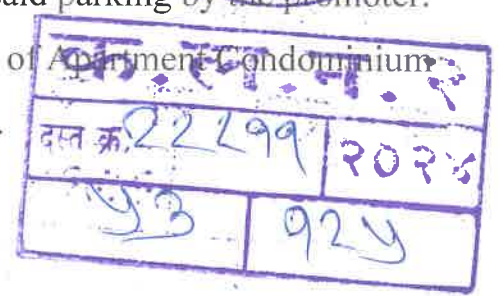 said parking by the promoter.
of Apartment Condominium
दस्त क्र. २०२४
५३ १२५